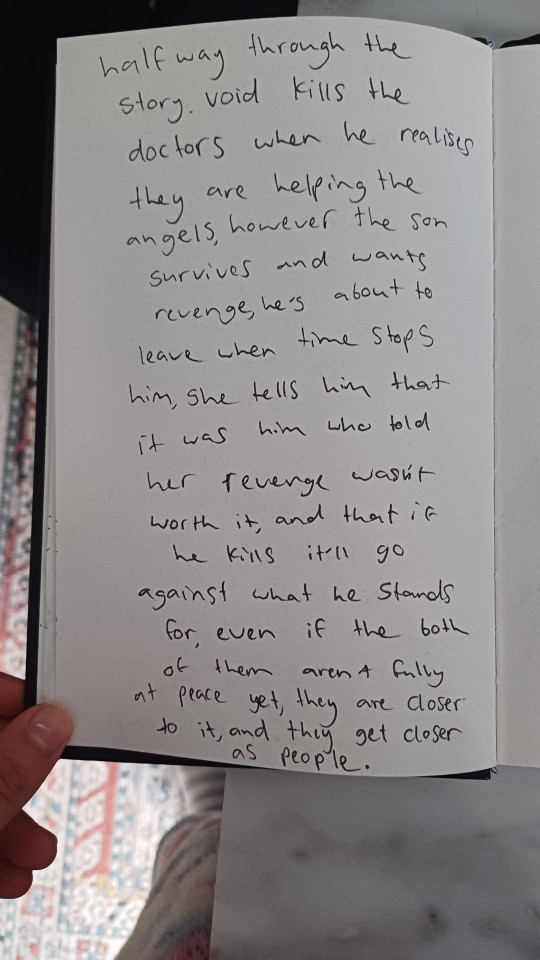 half way through the
story. void kills the
doctors when he realises
they are helping the
angels, however the son
survives and wants
revenge, he's about to
leave when time stops
him, she tells him that
it was him who told
her revenge wasn't
worth it, and that if
he kills it'll go
against what he stands
for, even if the both
of them aren't fully
at peace yet, they are closer
to it, and they get closer
as people.